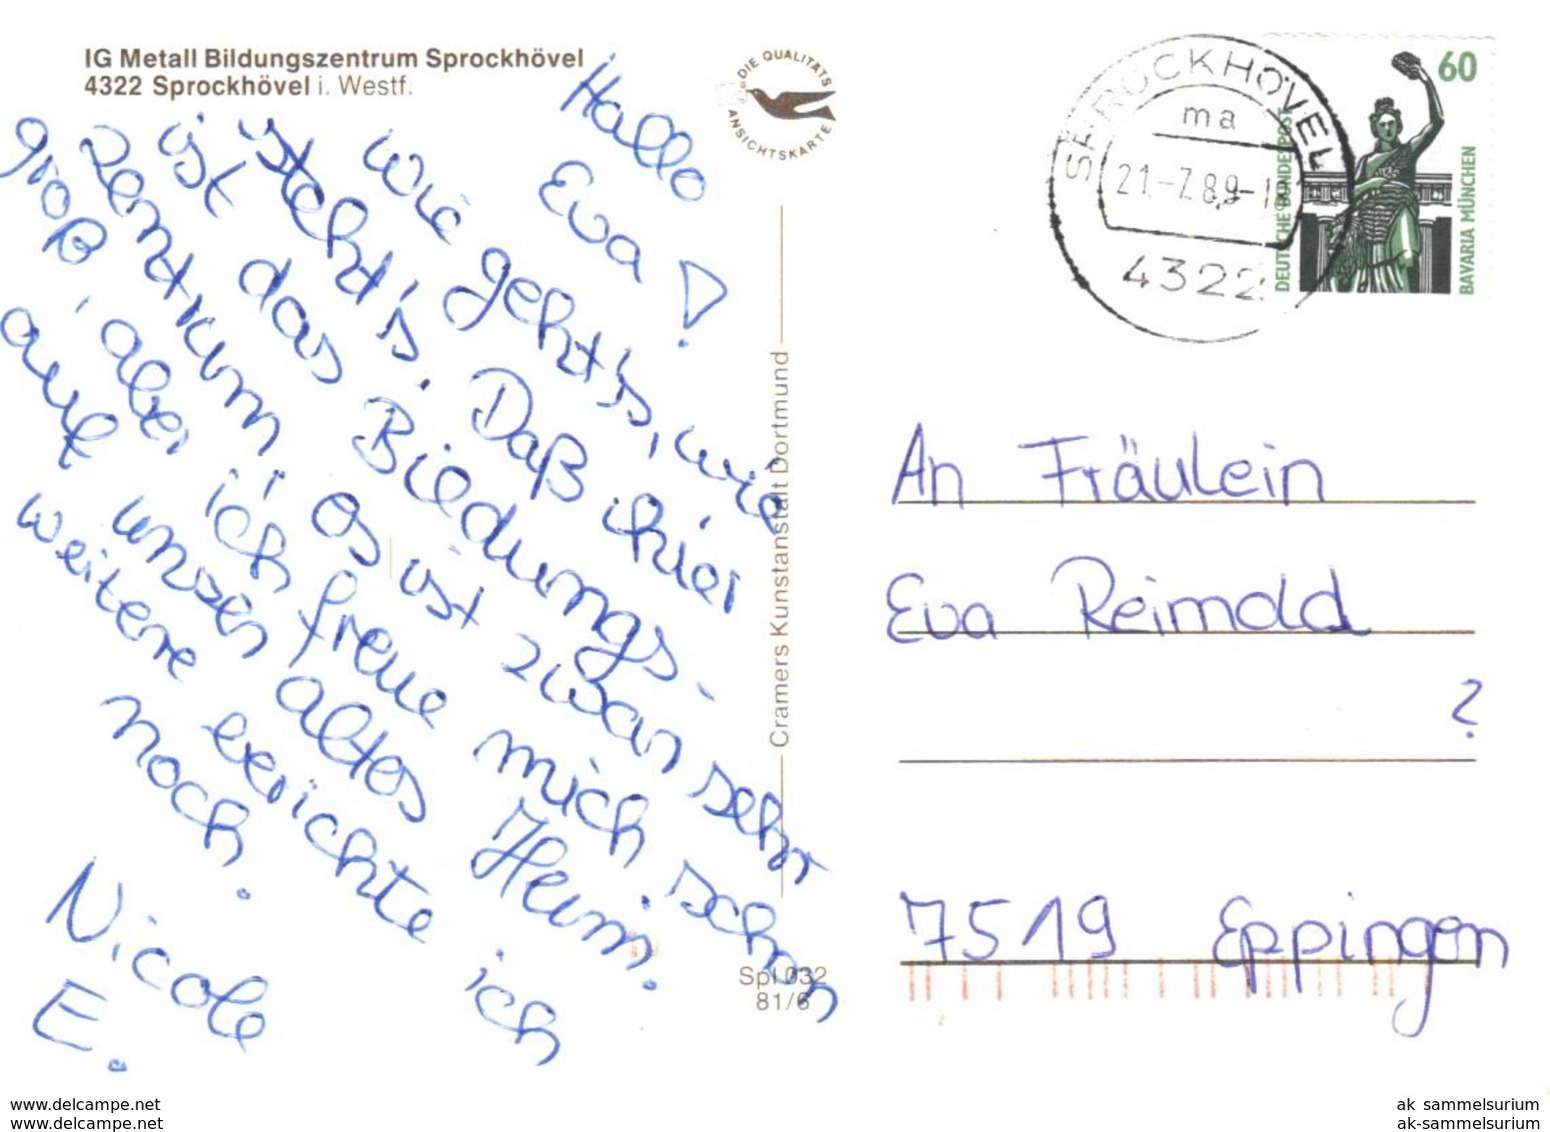 IG Metall Bildungszentrum Sprockhövel
4322 Sprockhövel i. Westf.
DIE QUALITÄTS
ANSICHTSKARTE
Hallo
Eva!
Wie geht's, wie
steht's. Daß ihier
ist das Bieldungs-
Zentrum, es ist zwar sehr
groß, aber ich freue mich schon
auf unser altes Heim.
weitere berichte ich
noch.
Nicole
E.
Cramers Kunstanstalt Dortmund
Spl 032
81/6
SPROCKHÖVEL
ma
21.-7.89-1
4322
60
DEUTSCHE BUNDESPOST
BAVARIA MÜNCHEN
An Fräulein
Eva Reimold
?
7519 Eppingen
www.delcampe.net
www.delcampe.net
ak_sammelsurium
ak-sammelsurium